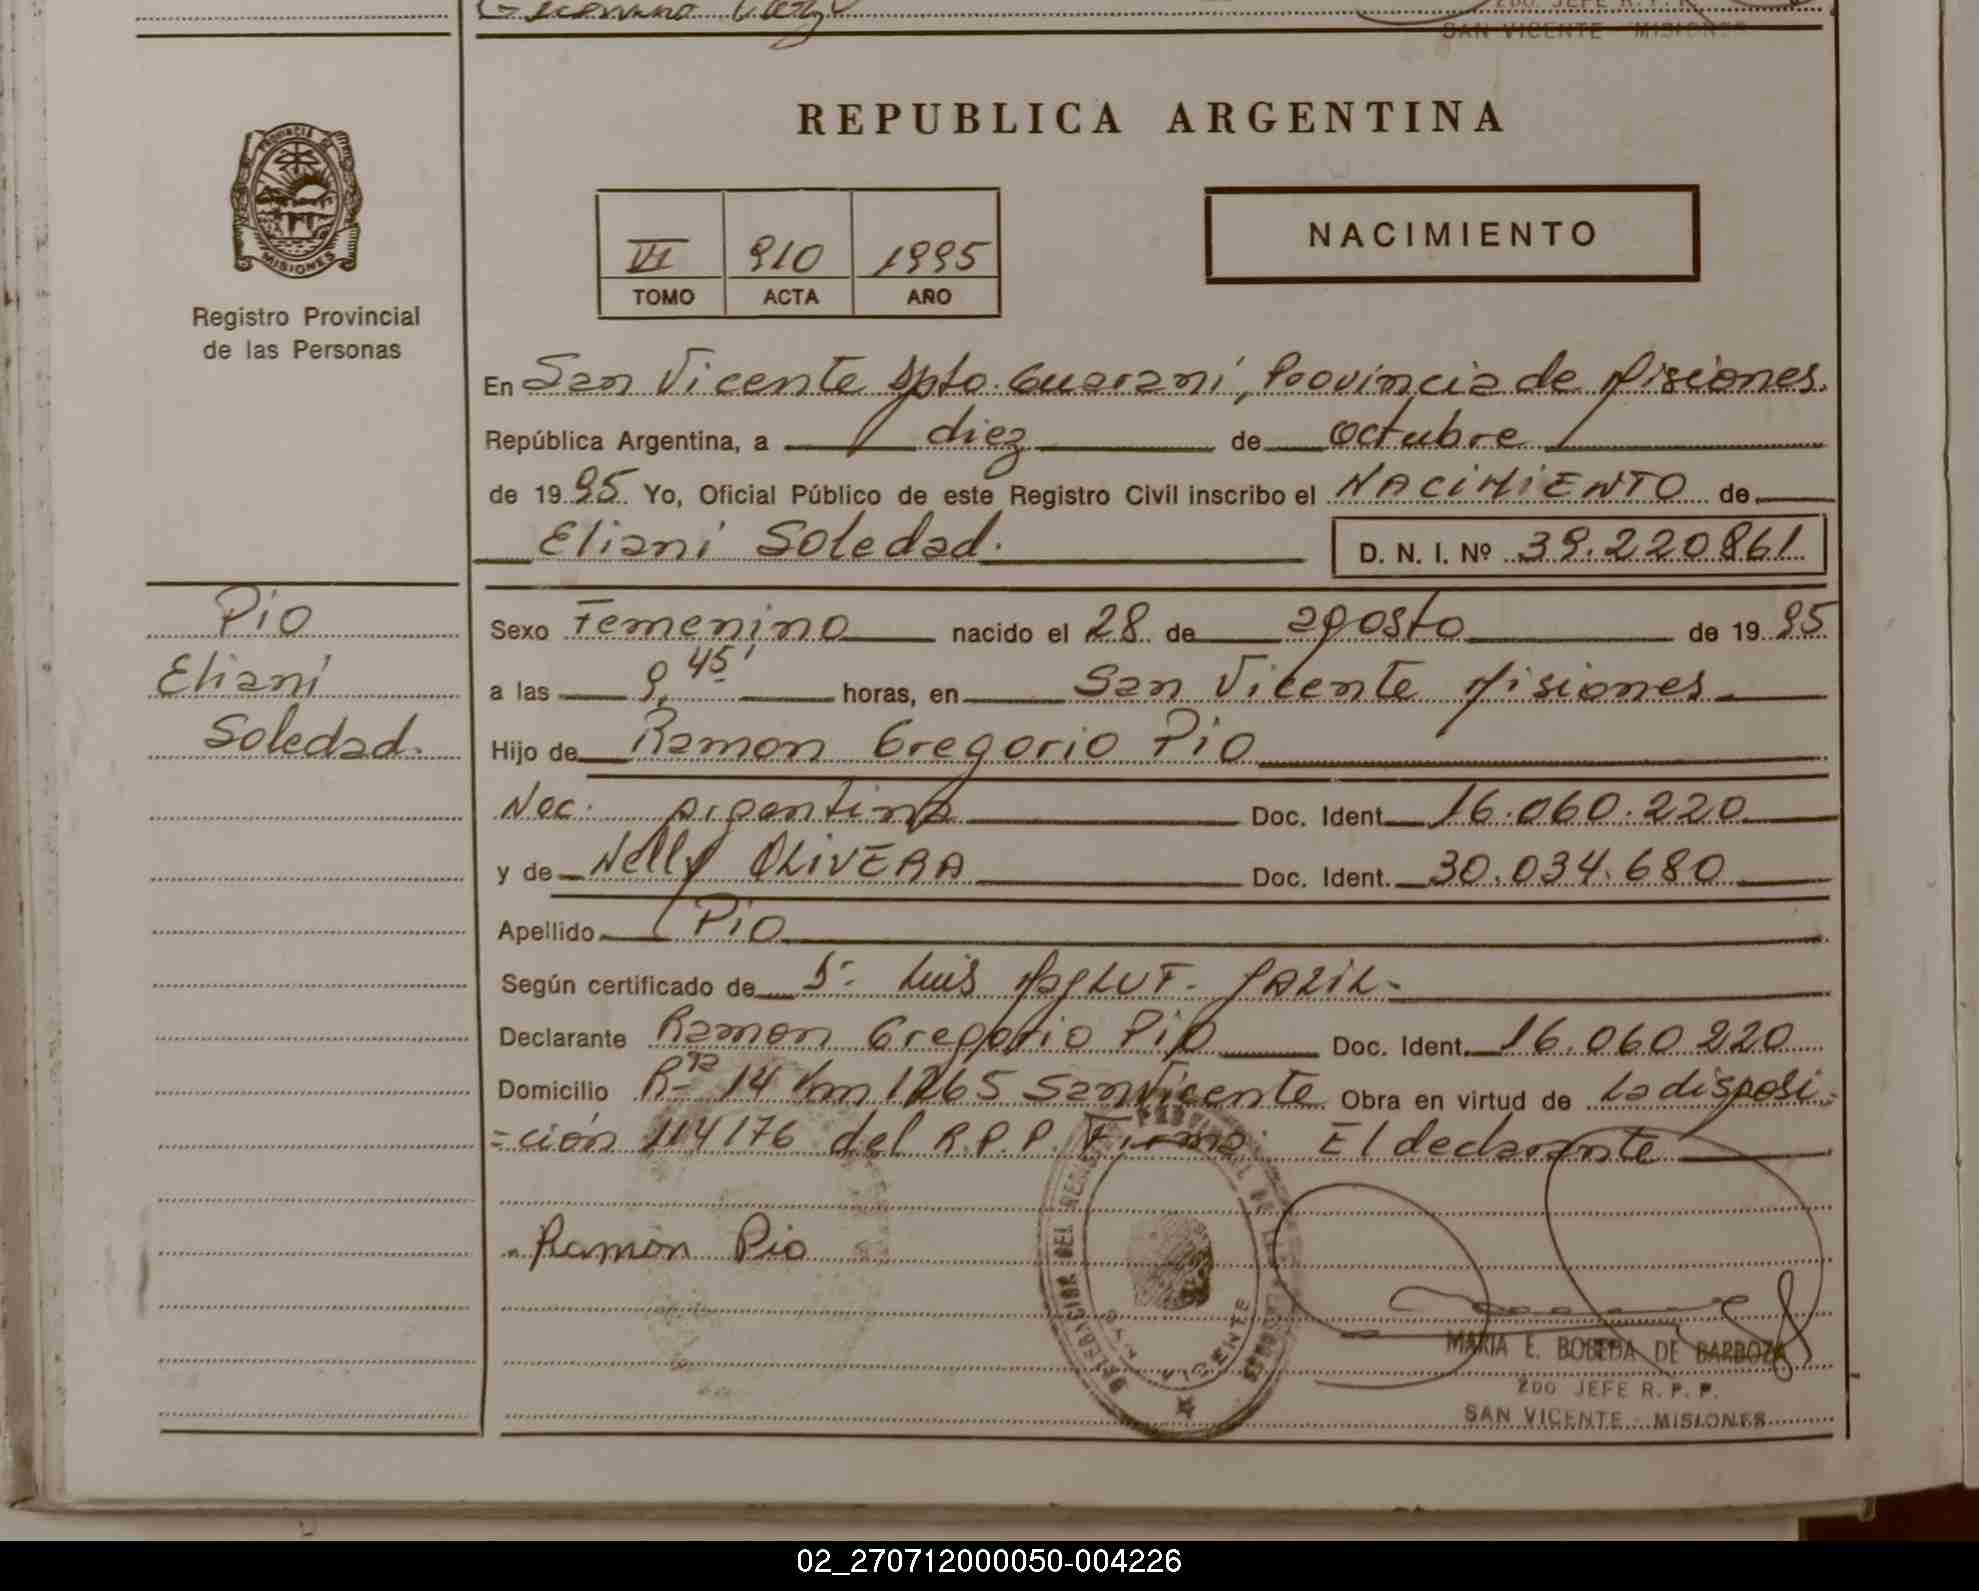 REPUBLICA ARGENTINA
PROVINCIA DE MISIONES
Registro Provincial
de las Personas
VI 910 1995
TOMO ACTA AÑO
NACIMIENTO
En San Vicente Dpto. Guaraní, Provincia de Misiones.
República Argentina, a diez de octubre
de 1995. Yo, Oficial Público de este Registro Civil inscribo el NACIMIENTO de
Eliani Soledad. D. N. I. Nº 39.220861
Pio
Eliani
Soledad.
Sexo Femenino nacido el 28 de agosto de 1995
a las 9,45' horas, en San Vicente Misiones
Hijo de Ramon Gregorio Pio
Nac: argentina Doc. Ident. 16.060.220
y de Nelly OLIVERA Doc. Ident. 30.034.680
Apellido Pio
Según certificado de Luis
Declarante Ramon Gregorio Pio Doc. Ident. 16.060220
Domicilio R-na 14 Km 1265 San Vicente Obra en virtud de la disposi-
=ción 114176 del R.P.P. Firma: El declarante
Ramon Pio
DELEGACION DEL REGISTRO PROVINCIAL DE LAS PERSONAS
VICENTE
MARIA E. BOBEDA DE BARBOZA
2DO JEFE R. P. P.
SAN VICENTE - MISIONES
02_270712000050-004226